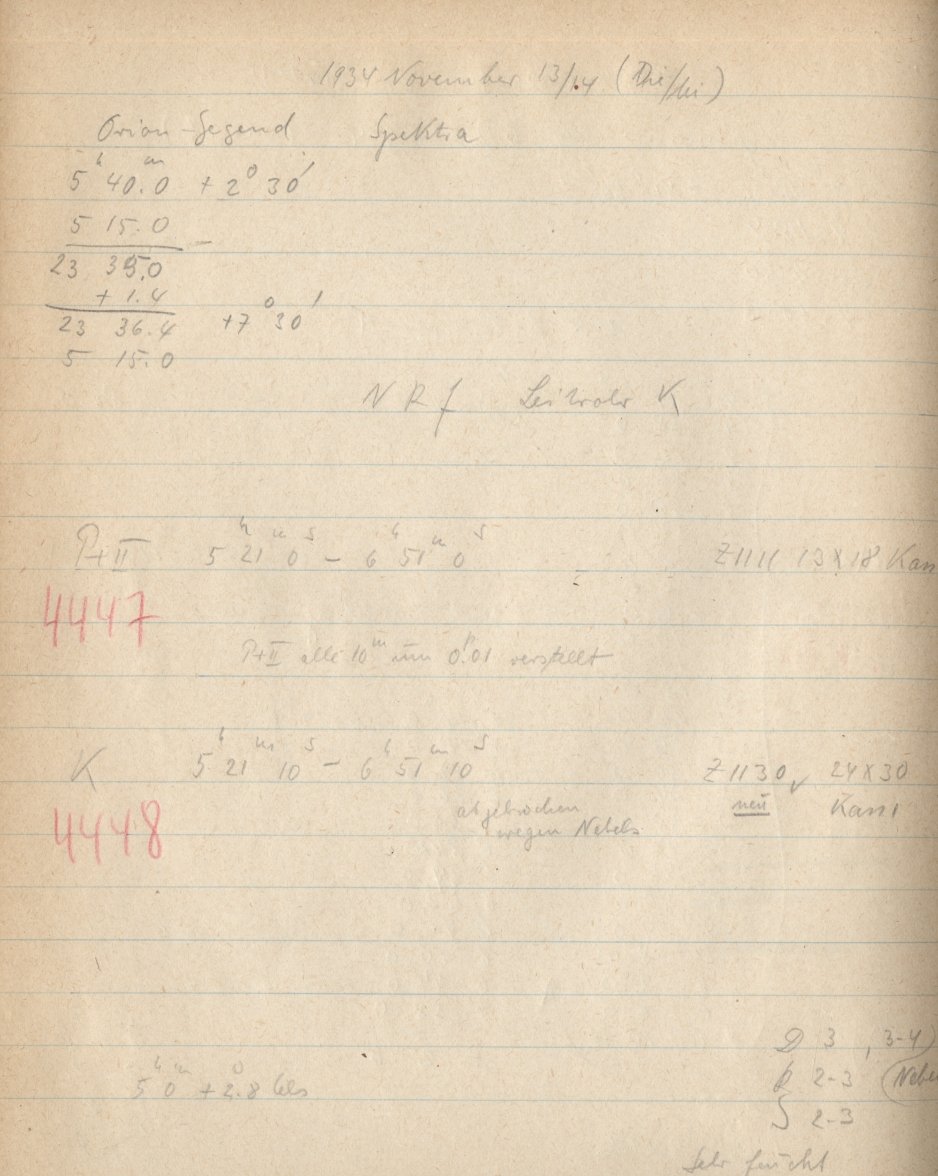 1934 November 13/14 (Die/Mi)
Orion-Gegend Spektra
5ʰ 40.0ᵐ + 2° 30'
5 15.0
23 35.0
+ 1.4
23 36.4 +7° 30'
5 15.0
N R f Leitrohr K
P+II 5ʰ 21ᵐ 0ˢ – 6ʰ 51ᵐ 0ˢ Z1111 13X18 Kass
4447
P+II alle 10ᵐ um 0.01 verstellt
K 5ʰ 21ᵐ 10ˢ – 6ʰ 51ᵐ 10ˢ Z1130 24X30
neu Kass
abgebrochen
wegen Nebels
4448
3 , 3-4)
5ʰ 0ᵐ +2.8° 2-3 (Nebe
2-3
Sehr feucht